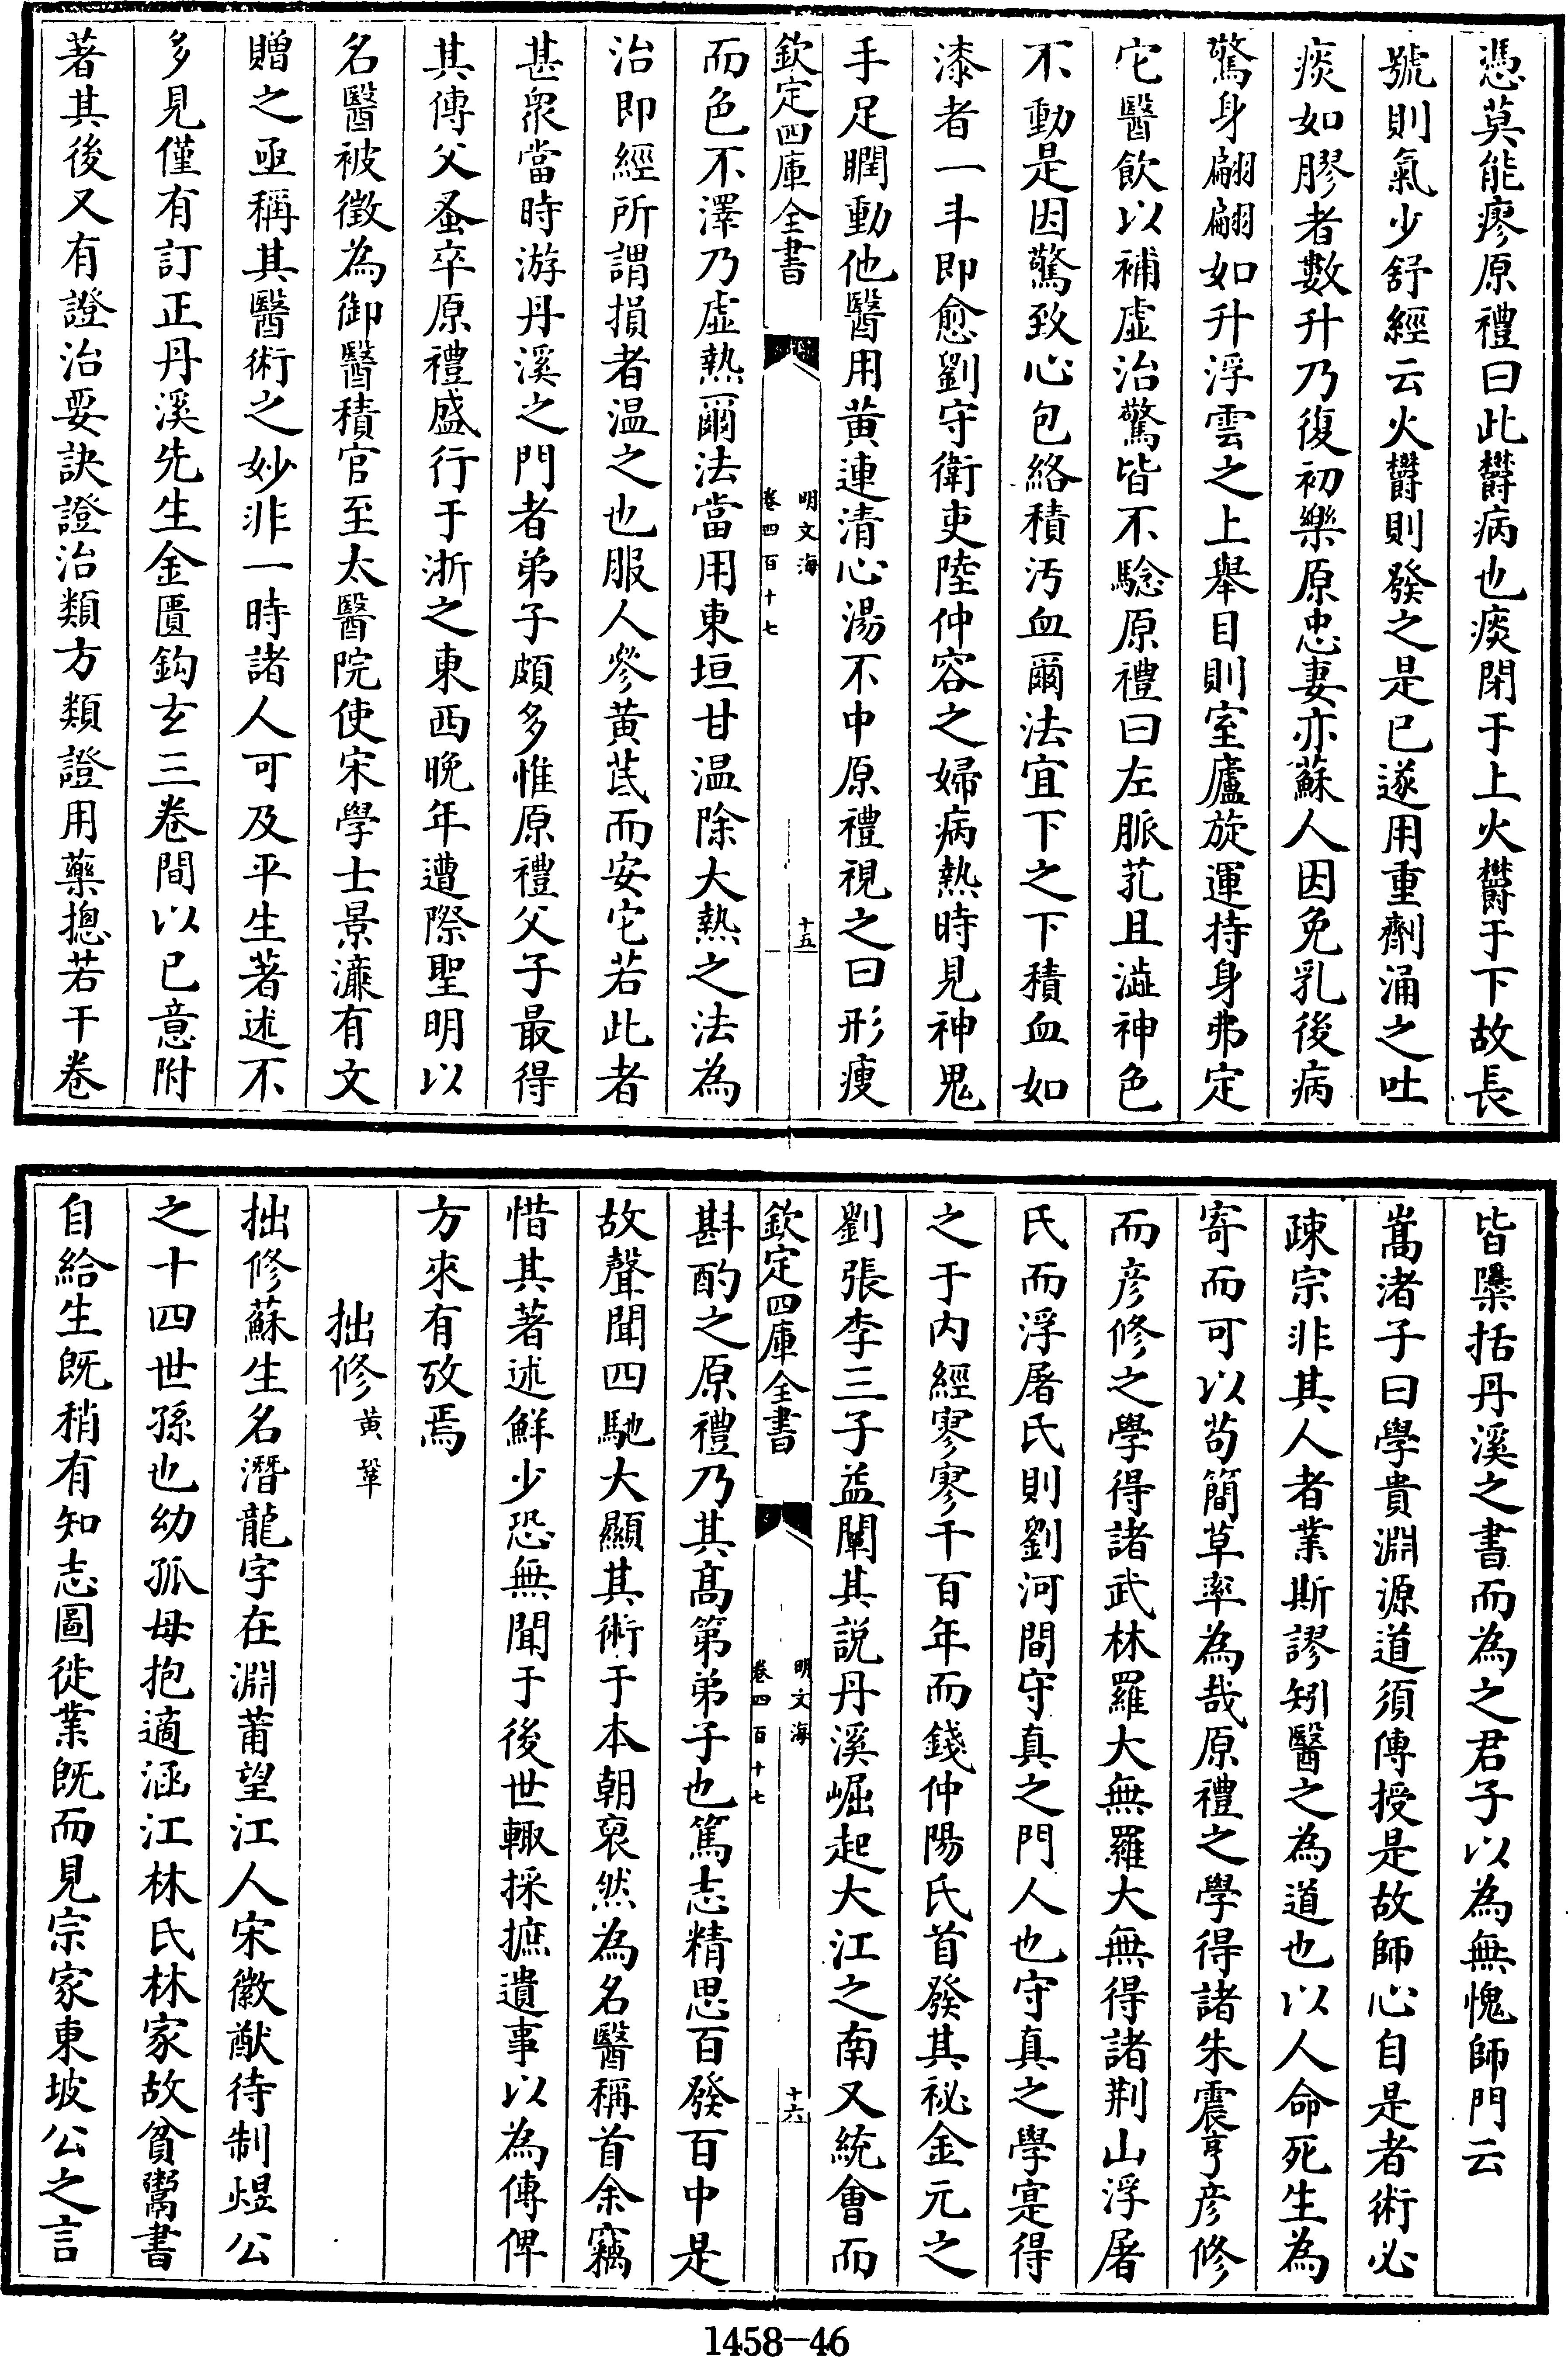 憑莫能瘳原禮曰此欝病也痰閉于上火欝于下故長
號則氣少舒經云火欝則發之是已遂用重劑涌之吐
痰如膠者數升乃復初樂原忠妻亦蘇人因免乳後病
驚身翩翩如升浮雲之上舉目則室廬旋運持身弗定
它醫飲以補虛治驚皆不騐原禮曰左脈芤且澁神色
不動是因驚致心包絡積汚血爾法宜下之下積血如
漆者一斗即愈劉守衛吏陸仲容之婦病熱時見神鬼
手足瞤動他醫用黄連清心湯不中原禮視之曰形瘦
欽定四庫全書
明文海
卷四百十七
十五
而色不澤乃虛熱爾法當用東垣甘温除大熱之法為
治即經所謂損者温之也服人參黄芪而安它若此者
甚衆當時游丹溪之門者弟子頗多惟原禮父子最得
其傳父蚤卒原禮盛行于浙之東西晚年遭際聖明以
名醫被徴為御醫積官至太醫院使宋學士景濂有文
贈之亟稱其醫術之妙非一時諸人可及平生著述不
多見僅有訂正丹溪先生金匱鈎玄三卷間以已意附
著其後又有證治要訣證治類方類證用藥摠若干卷
皆檃括丹溪之書而為之君子以為無愧師門云
嵩渚子曰學貴淵源道須傳授是故師心自是者術必
疎宗非其人者業斯謬矧醫之為道也以人命死生為
寄而可以苟簡草率為哉原禮之學得諸朱震亨彦修
而彦修之學得諸武林羅大無羅大無得諸荆山浮屠
氏而浮屠氏則劉河間守真之門人也守真之學寔得
之于内經寥寥千百年而錢仲陽氏首發其祕金元之
劉張李三子益闡其説丹溪崛起大江之南又統會而
欽定四庫全書
明文海
卷四百十七
十六
斟酌之原禮乃其髙第弟子也篤志精思百發百中是
故聲聞四馳大顯其術于本朝裒然為名醫稱首余竊
惜其著述鮮少恐無聞于後世輙採摭遺事以為傳俾
方來有攷焉
拙修 黄鞏
拙修蘇生名潛龍字在淵莆望江人宋徽猷待制煜公
之十四世孫也幼孤母抱適涵江林氏林家故貧鬻書
自給生既稍有知志圖徙業既而見宗家東坡公之言
1458-46